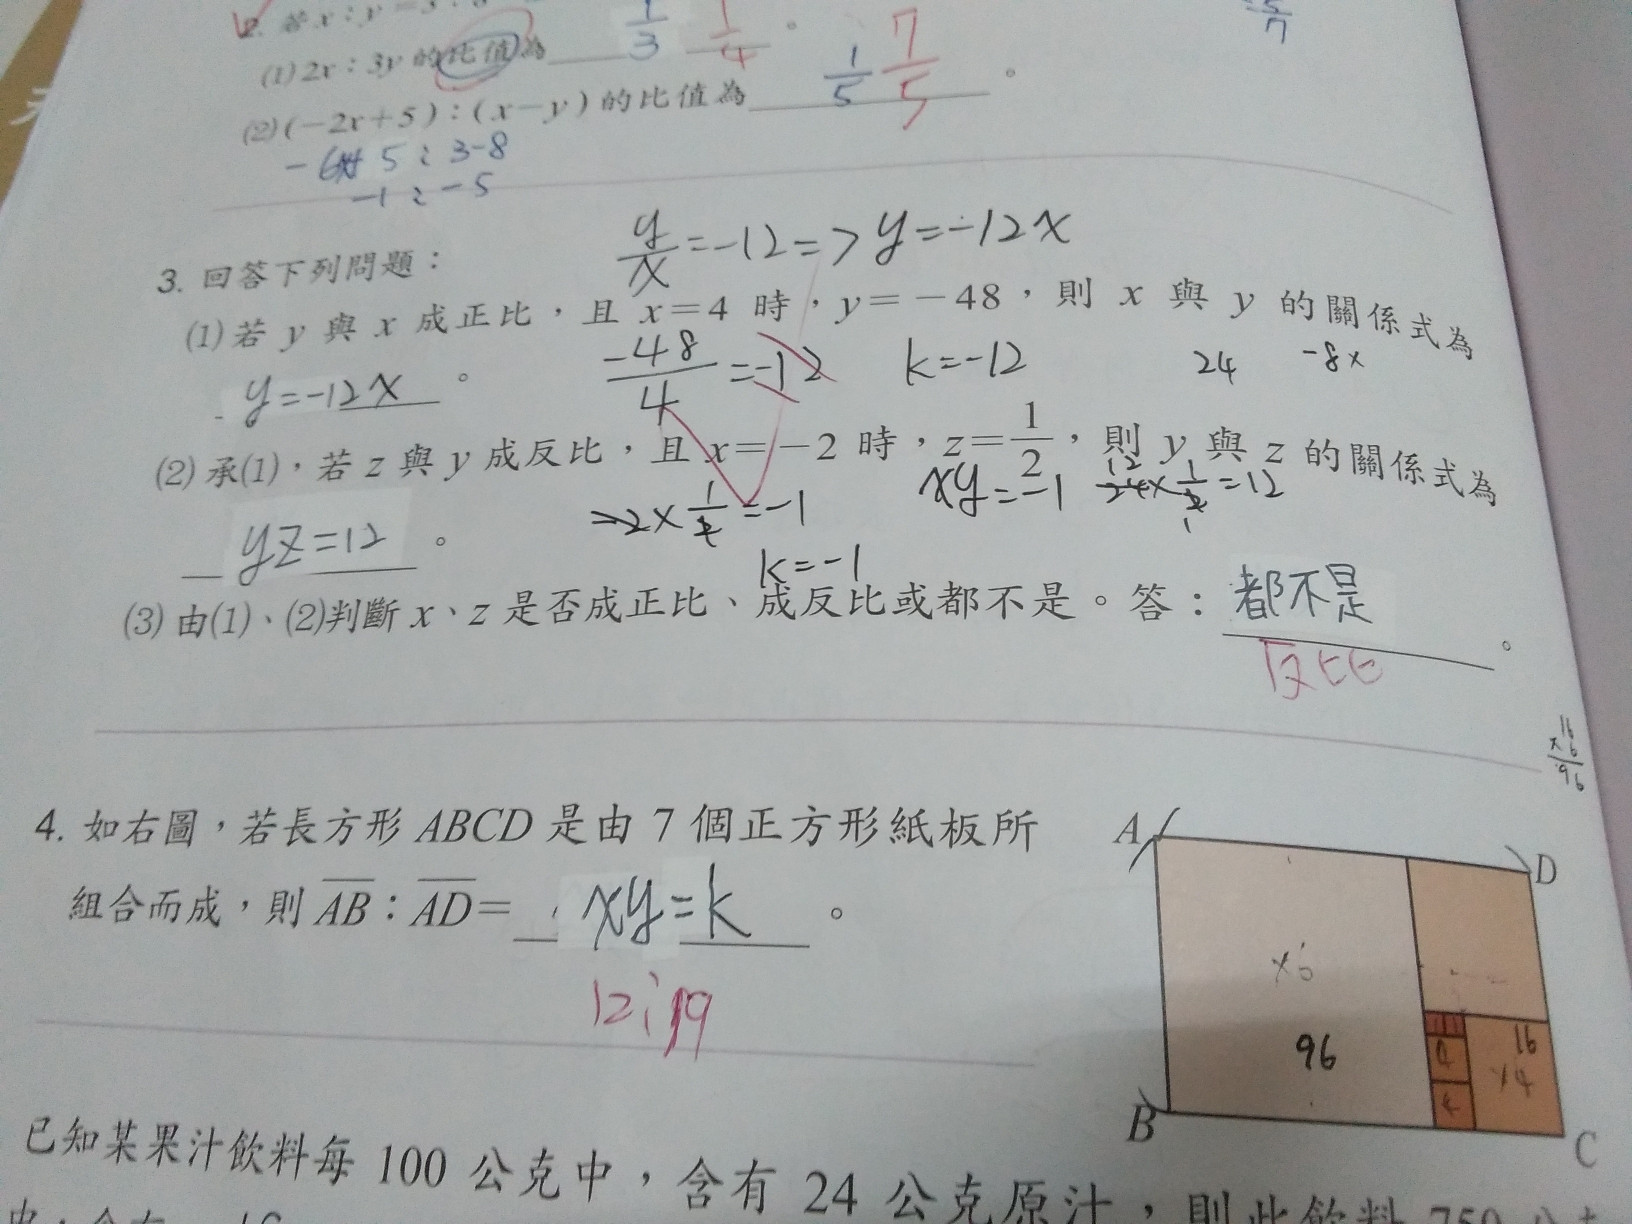 2. 若 x：y＝3：8
(1) 2x：3y 的比值為 1/3 1/4 。
(2) (－2x＋5)：(x－y) 的比值為 1/5 7/5 。
5 : 3-8
-1 : -5
y/x = -12 => y = -12x
3. 回答下列問題：
(1) 若 y 與 x 成正比，且 x＝4 時，y＝－48，則 x 與 y 的關係式為
y=-12x 。 -48/4 = -12 k=-12 24 -8x
(2) 承(1)，若 z 與 y 成反比，且 x＝－2 時，z＝1/2，則 y 與 z 的關係式為
-2×1/2=-1 xy=-1 12 24×1/2=12
yz=12 。
k=-1
(3) 由(1)、(2)判斷 x、z 是否成正比、成反比或都不是。答：都不是 。
反比
16
×6
96
4. 如右圖，若長方形 ABCD 是由 7 個正方形紙板所
組合而成，則 AB：AD＝ xy=k 。
12:19
A
D
×6
96
16
×4
4
B
C
已知某果汁飲料每 100 公克中，含有 24 公克原汁，則此飲料 750